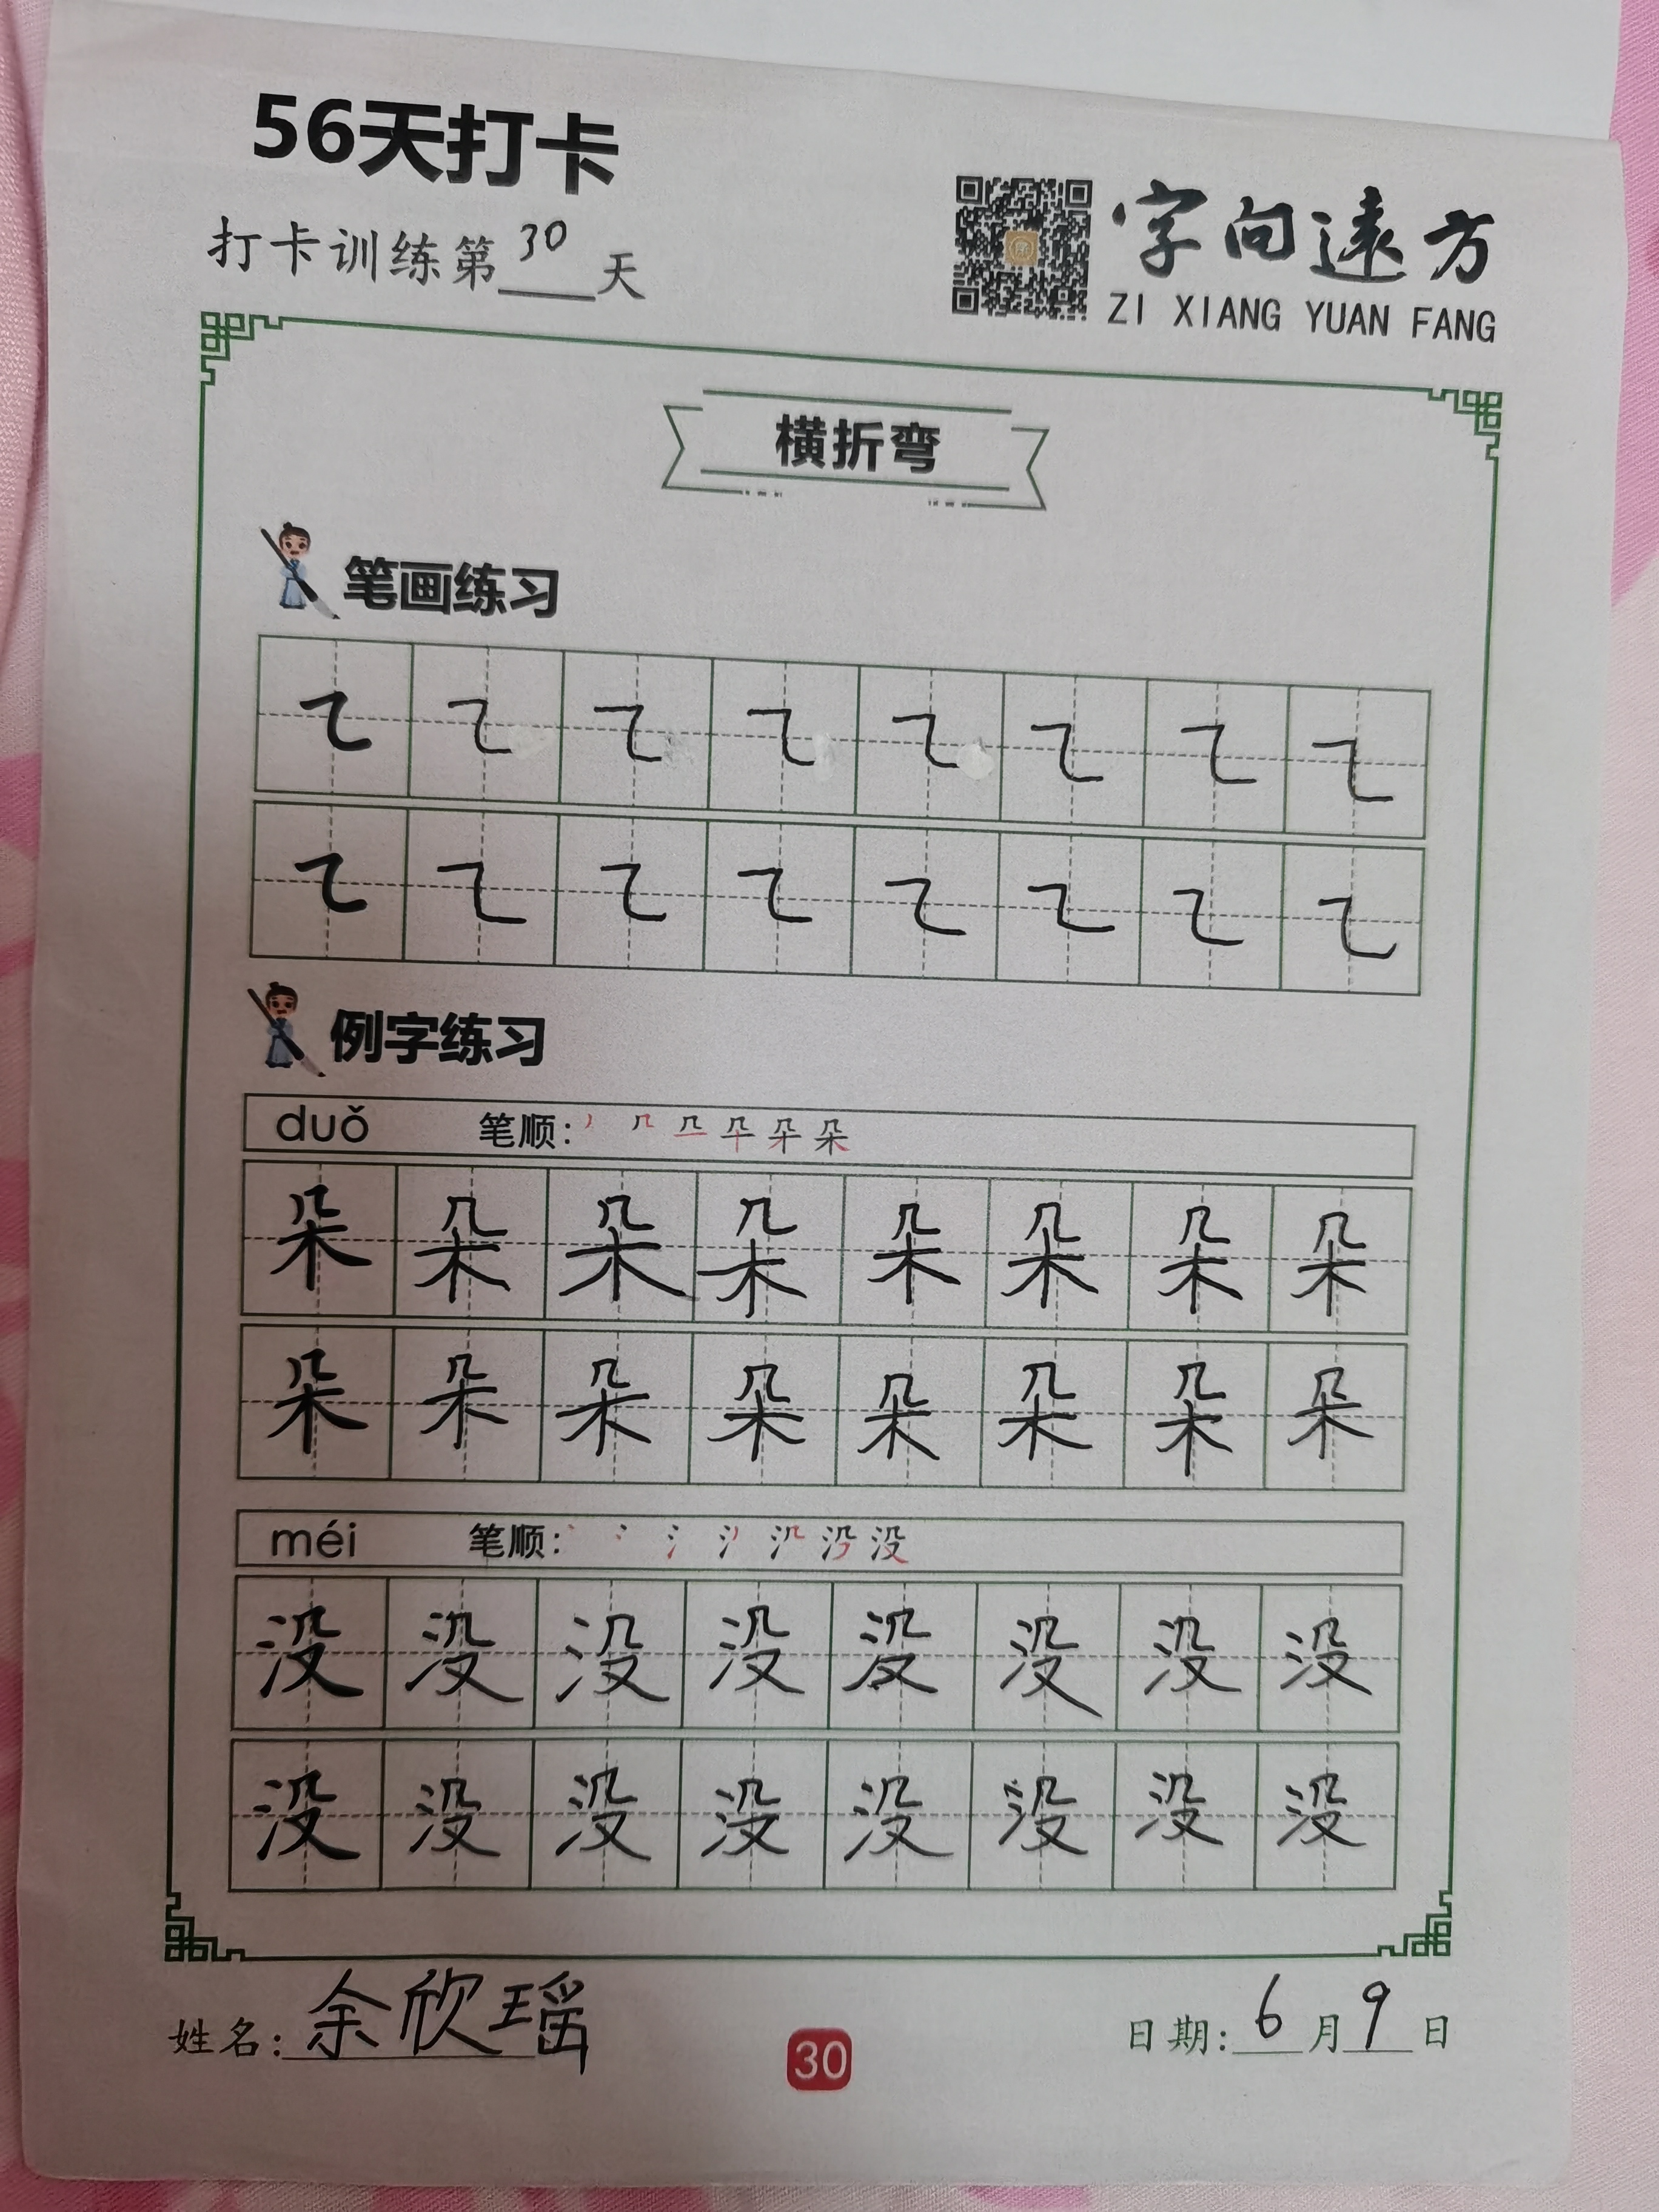 56天打卡
打卡训练第30天
字向遠方
ZI XIANG YUAN FANG
横折弯
笔画练习
㇍ ㇍ ㇍ ㇍ ㇍ ㇍ ㇍ ㇍
㇍ ㇍ ㇍ ㇍ ㇍ ㇍ ㇍ ㇍
例字练习
duǒ 笔顺: 朵
朵 朵 朵 朵 朵 朵 朵 朵
朵 朵 朵 朵 朵 朵 朵 朵
méi 笔顺: 没
没 没 没 没 没 没 没 没
没 没 没 没 没 没 没 没
姓名: 余欣瑶
30
日期: 6月9日